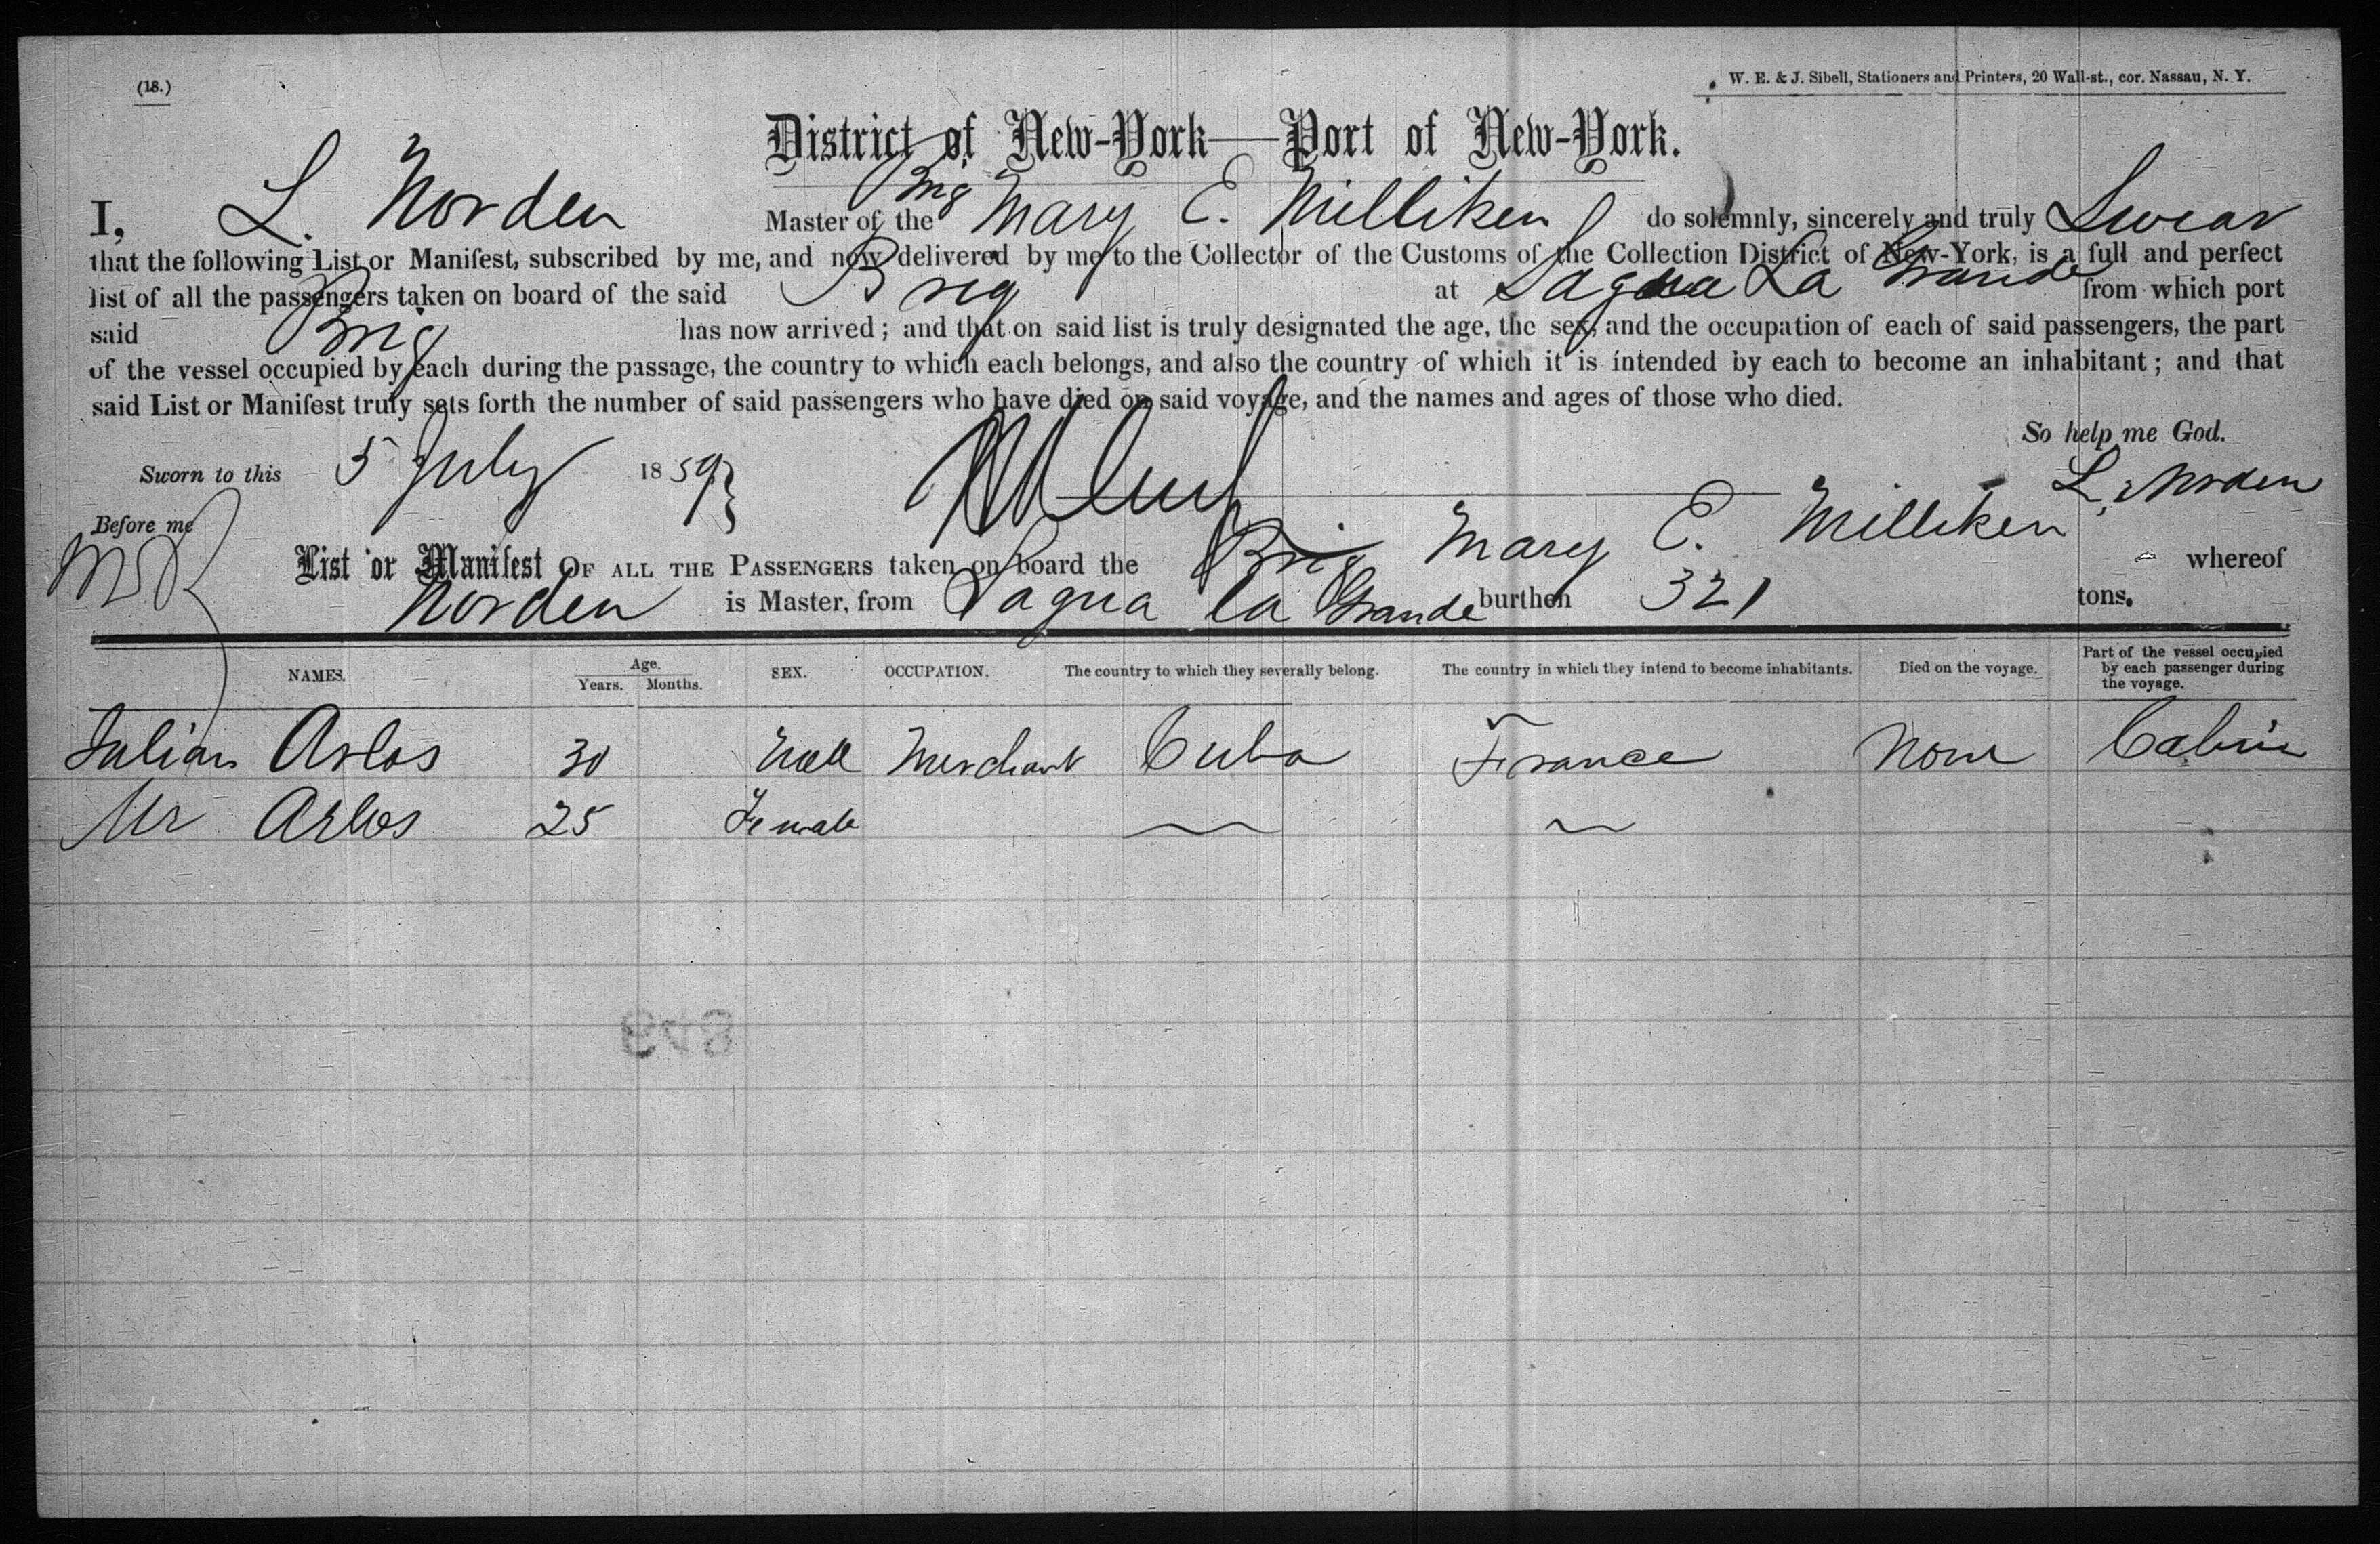 (18.)
W. E. & J. Sibell, Stationers and Printers, 20 Wall-st., cor. Nassau, N. Y.
District of New-York—Port of New-York.
I, L. Norden Master of the Brig Mary E. Milliken do solemnly, sincerely and truly Swear
that the following List or Manifest, subscribed by me, and now delivered by me to the Collector of the Customs of the Collection District of New-York, is a full and perfect
list of all the passengers taken on board of the said Brig at Sagua La Grande from which port
said Brig has now arrived; and that on said list is truly designated the age, the sex, and the occupation of each of said passengers, the part
of the vessel occupied by each during the passage, the country to which each belongs, and also the country of which it is intended by each to become an inhabitant; and that
said List or Manifest truly sets forth the number of said passengers who have died on said voyage, and the names and ages of those who died.
So help me God.
Sworn to this 5 July 1859
L. Norden
Before me
List or Manifest OF ALL THE PASSENGERS taken on board the Brig Mary E. Milliken whereof
Norden is Master, from Sagua la Grande burthen 321 tons.
NAMES. Age. Years. Months. SEX. OCCUPATION. The country to which they severally belong. The country in which they intend to become inhabitants. Died on the voyage. Part of the vessel occupied by each passenger during the voyage.
Julian Arlos 30 Male Merchant Cuba France None Cabin
Mr Arlos 25 Female